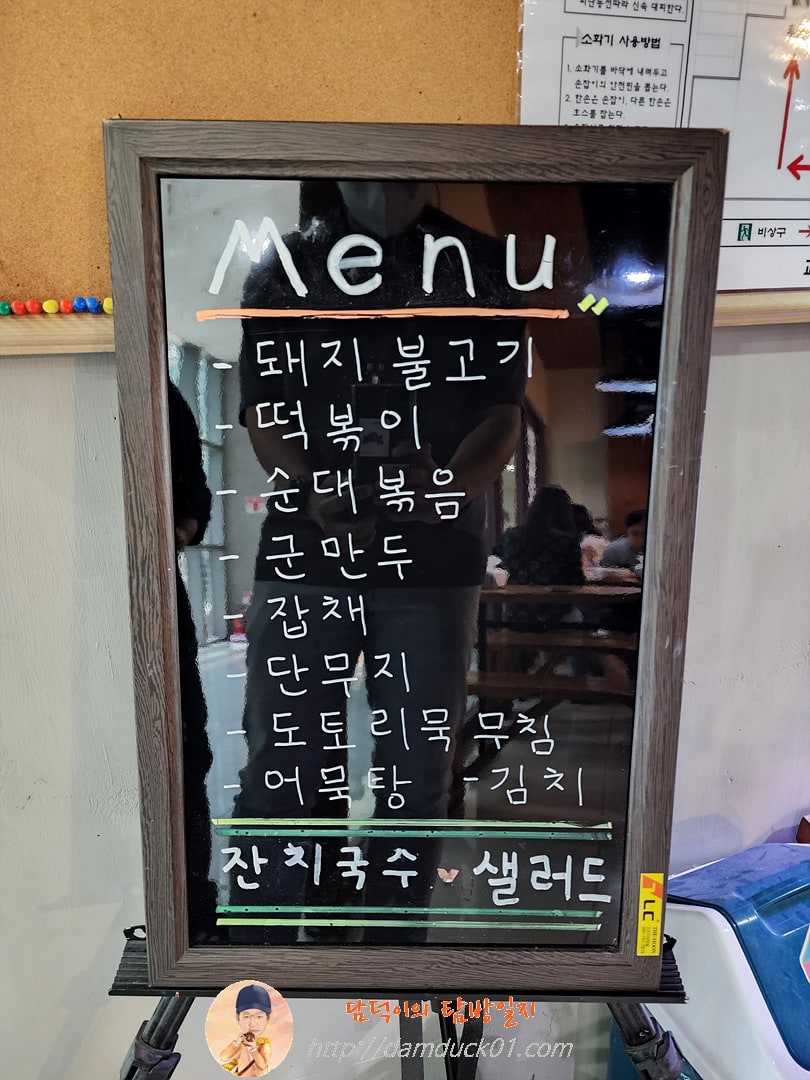 피난동선따라 신속 대피한다.
소화기 사용방법
1. 소화기를 바닥에 내려두고
손잡이의 안전핀을 뽑는다.
2. 한손은 손잡이, 다른 한손은
호스를 잡는다.
비상구
Menu
- 돼지 불고기
- 떡볶이
- 순대볶음
- 군만두
- 잡채
- 단무지
- 도토리묵 무침
- 어묵탕 - 김치
잔치국수 샐러드
담덕이의 탐방일지
http://damduck01.com